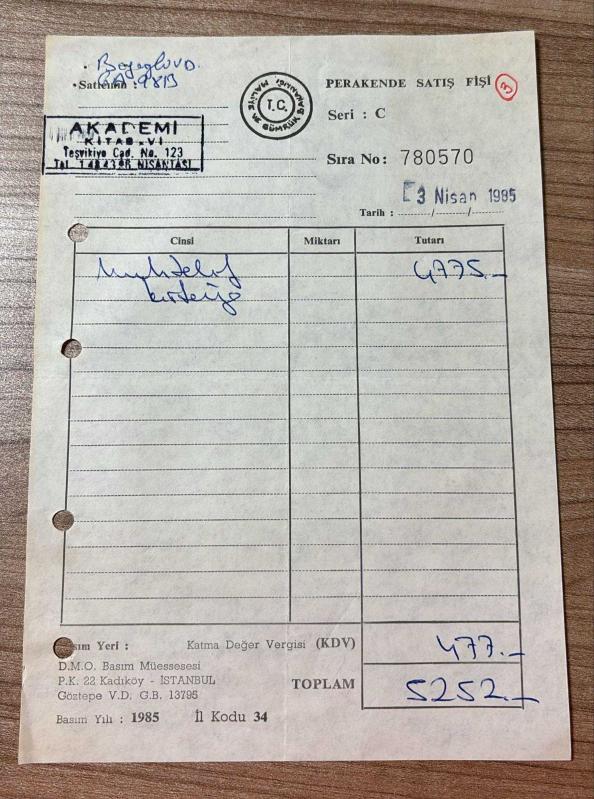 Beyoğlu V.D.
Satıcının :
T.C. MALİYE VE GÜMRÜK BAKANLIĞI
PERAKENDE SATIŞ FİŞİ
3
Seri : C
AKADEMİ
KİTABEVİ
Teşvikiye Cad. No. 123
NİŞANTAŞI
Sıra No: 780570
3 Nisan 1985
Tarih : ....../....../......
Cinsi Miktarı Tutarı
Muhtelif 4775.-
kırtasiye
Basım Yeri : Katma Değer Vergisi (KDV) 477.-
D.M.O. Basım Müessesesi
P.K. 22 Kadıköy - İSTANBUL
Göztepe V.D. G.B. 13795
TOPLAM 5252.-
Basım Yılı : 1985 İl Kodu 34